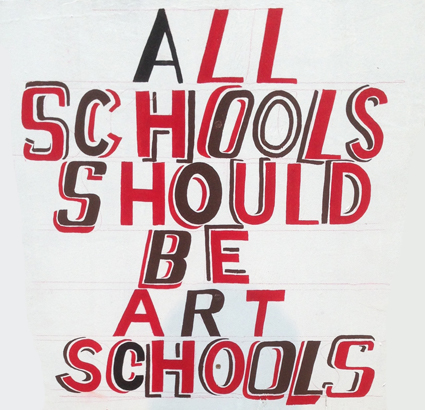 ALL
SCHOOLS
SHOULD
BE
ART
SCHOOLS